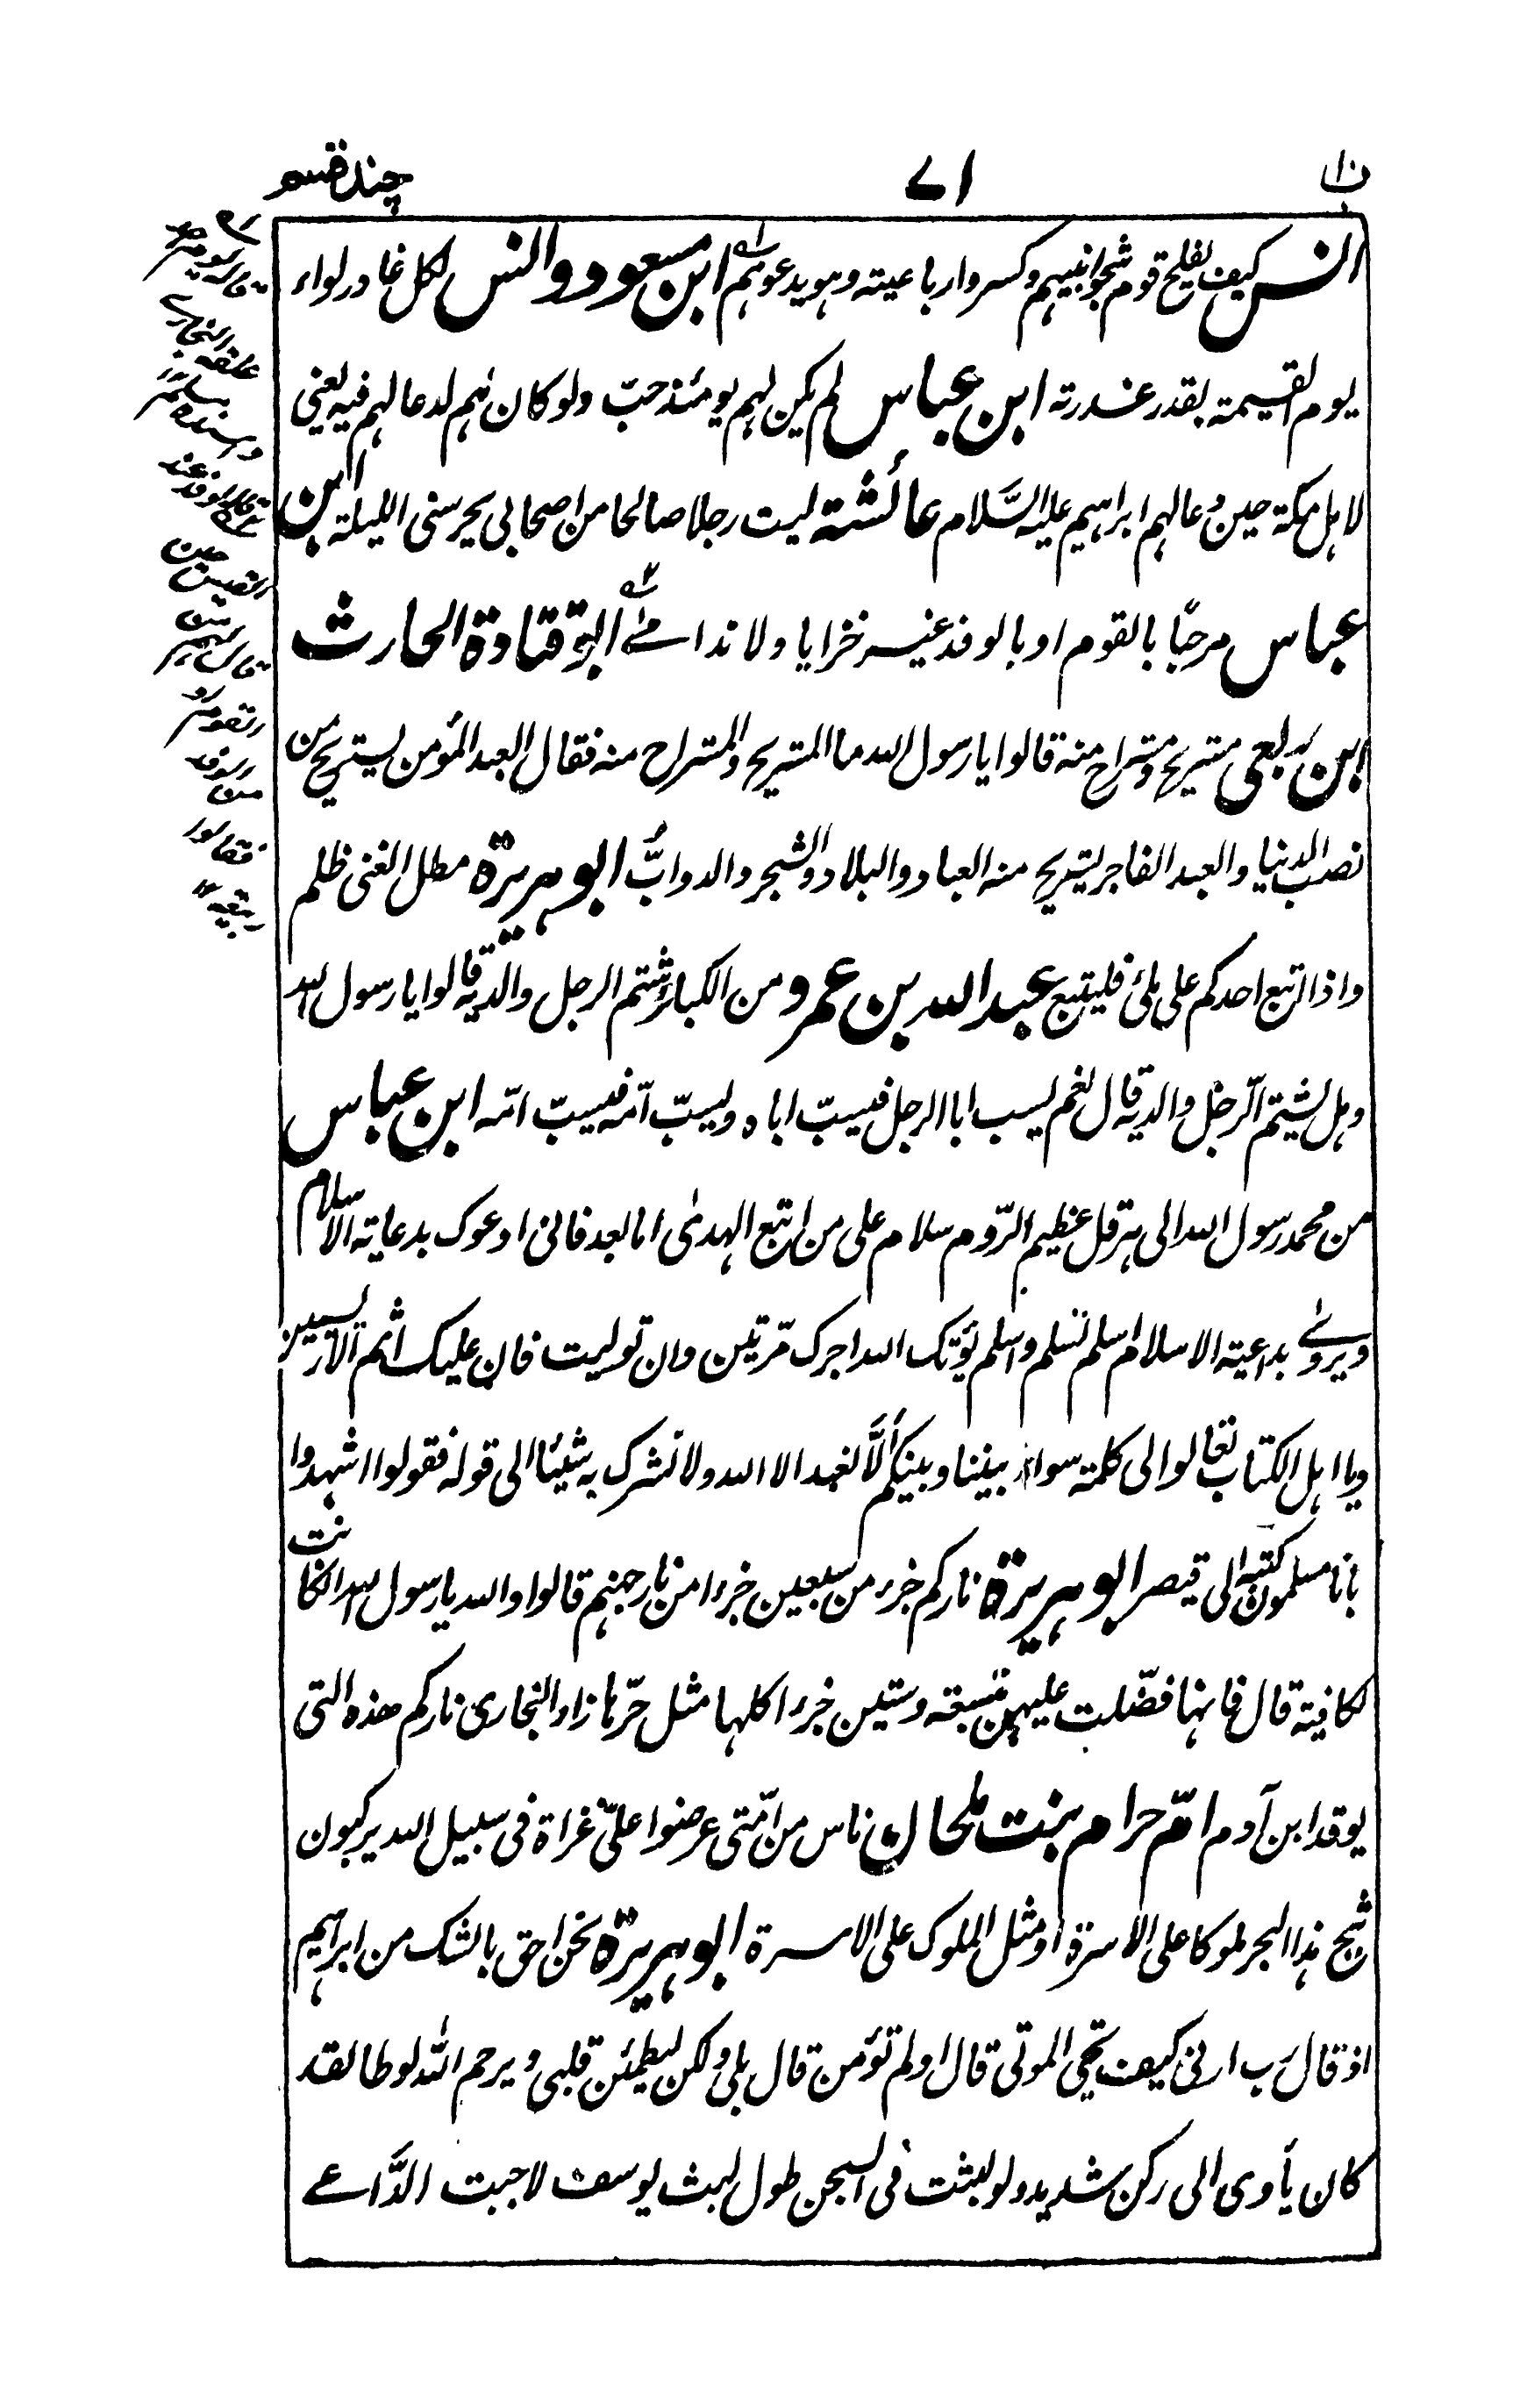 ۷۱
چند قسم
انس کیف یفلح قوم شجوا نبیهم وکسروا رباعیته وهو یدعوهم ابن مسعود وانس لکل غادر لواء
یوم القیمة بقدر غدرته ابن عباس لم یکن لهم یومئذ حبّ ولو کان لهم لدعا لهم فیه یعنی
لاهل مکة حین دعا لهم ابراهیم علیه السَّلام عائشة لیت رجلا صالحا من اصحابی یحرسنی اللیلة ابن
عباس مرحبًا بالقوم او بالوفد غیر خزایا ولا ندامے ابو قتادة الحارث
ابن ربعی مستریح ومستراح منه قالوا یا رسول الله ما المستریح والمستراح منه فقال العبد المؤمن یستریح من
نصب الدنیا والعبد الفاجر یستریح منه العباد والبلاد والشجر والدوابُّ ابو هریرة مطل الغنی ظلم
واذا اتبع احدکم علی ملئ فلیتبع عبد الله بن عمرو من الکبائر شتم الرجل والدیه قالوا یا رسول الله
وهل یشتم الرّجل والدیه قال نعم یسب ابا الرجل فیسبّ اباه ویسبّ امّه فیسبّ امّه ابن عباس
من محمد رسول الله الی هرقل عظیم الرّوم سلام علی من اتبع الهدیٰ اما بعد فانی ادعوک بدعایة الاسلام
ویروے بداعیة الاسلام اسلم تسلم واسلم یؤتک الله اجرک مرّتین وان تولیت فان علیک اثم الاریسیین
ویا اهل الکتاب تعالوا الی کلمة سواء بیننا وبینکم ألَّا نعبد الا الله ولا نشرک به شیئا الی قوله فقولوا اشهدوا
بانا مسلمون کتبه الی قیصر ابو هریرة نارکم جزء من سبعین جزءا من نار جهنم قالوا والله یا رسول الله ان کانت
لکافیة قال فانها فضّلت علیهن بتسعة وستین جزءا کلها مثل حرّها زاد البخاری نارکم هذه التی
یوقد ابن آدم امّ حرام بنت ملحان ناس من امّتی عرضوا علیّ غزاة فی سبیل الله یرکبون
ثبج هذا البحر ملوکا علی الاسرة او مثل الملوک علی الاسرة ابو هریرة نحن احق بالشک من ابراهیم
اذ قال رب ارنی کیف تحی الموتی قال اولم تؤمن قال بلی ولکن لیطمئن قلبی ویرحم الله لوطا لقد
کان یأوی الی رکن شدید ولو لبثت فی السجن طول لبث یوسف لاجبت الدَّاعے